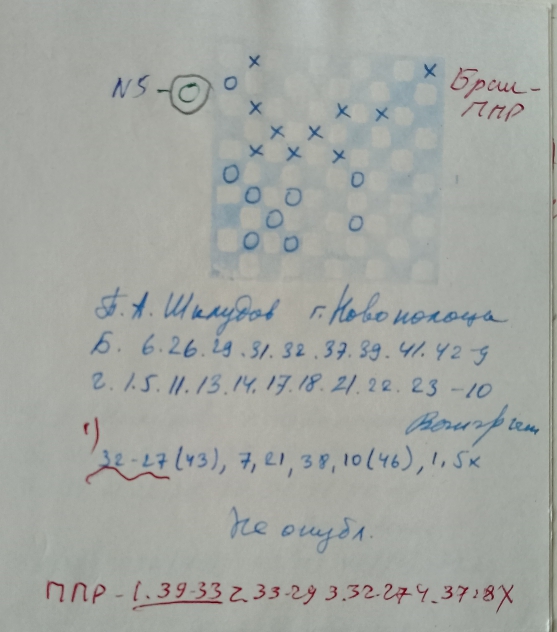 N5 -
Браш-
ППР
Б. А. Шклудов г. Новополоцк
Б. 6. 26. 29. 31. 32. 37. 39. 41. 42 - 9
ч. 1. 5. 11. 13. 14. 17. 18. 21. 22. 23 - 10
Выигрыш
1)
32-27 (43), 7, 21, 38, 10 (46), 1, 5x
Не опубл.
ППР - 1. 39-33 2. 33-29 3. 32-27 4. 37:8X